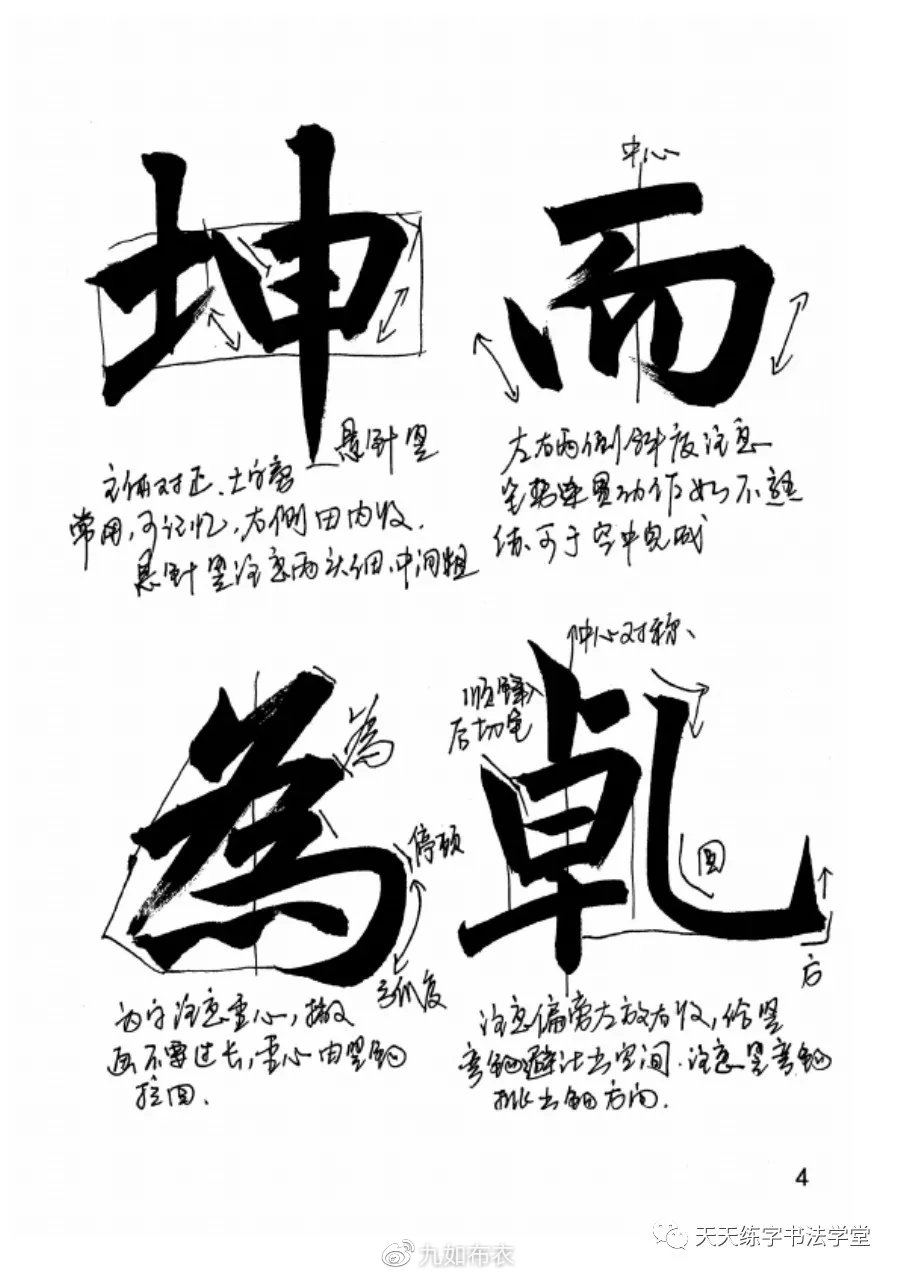 坤
而
中心
悬针竖
主体对正、土字旁
常用,可记忆,右侧田内收.
悬针竖注意两头细、中间粗
左右两侧斜度注意
笔势 动作如不熟
练可于空中完成
為
乾
中心对称、
顺锋
后切笔
為
停顿
圆
弧度
后
为字注意重心,撇
画不要过长,重心由竖钩
拉回.
注意偏旁左放右收,给竖
弯钩避让出空间.注意竖弯钩
挑出钩方向.
4
天天练字书法学堂
九如布衣